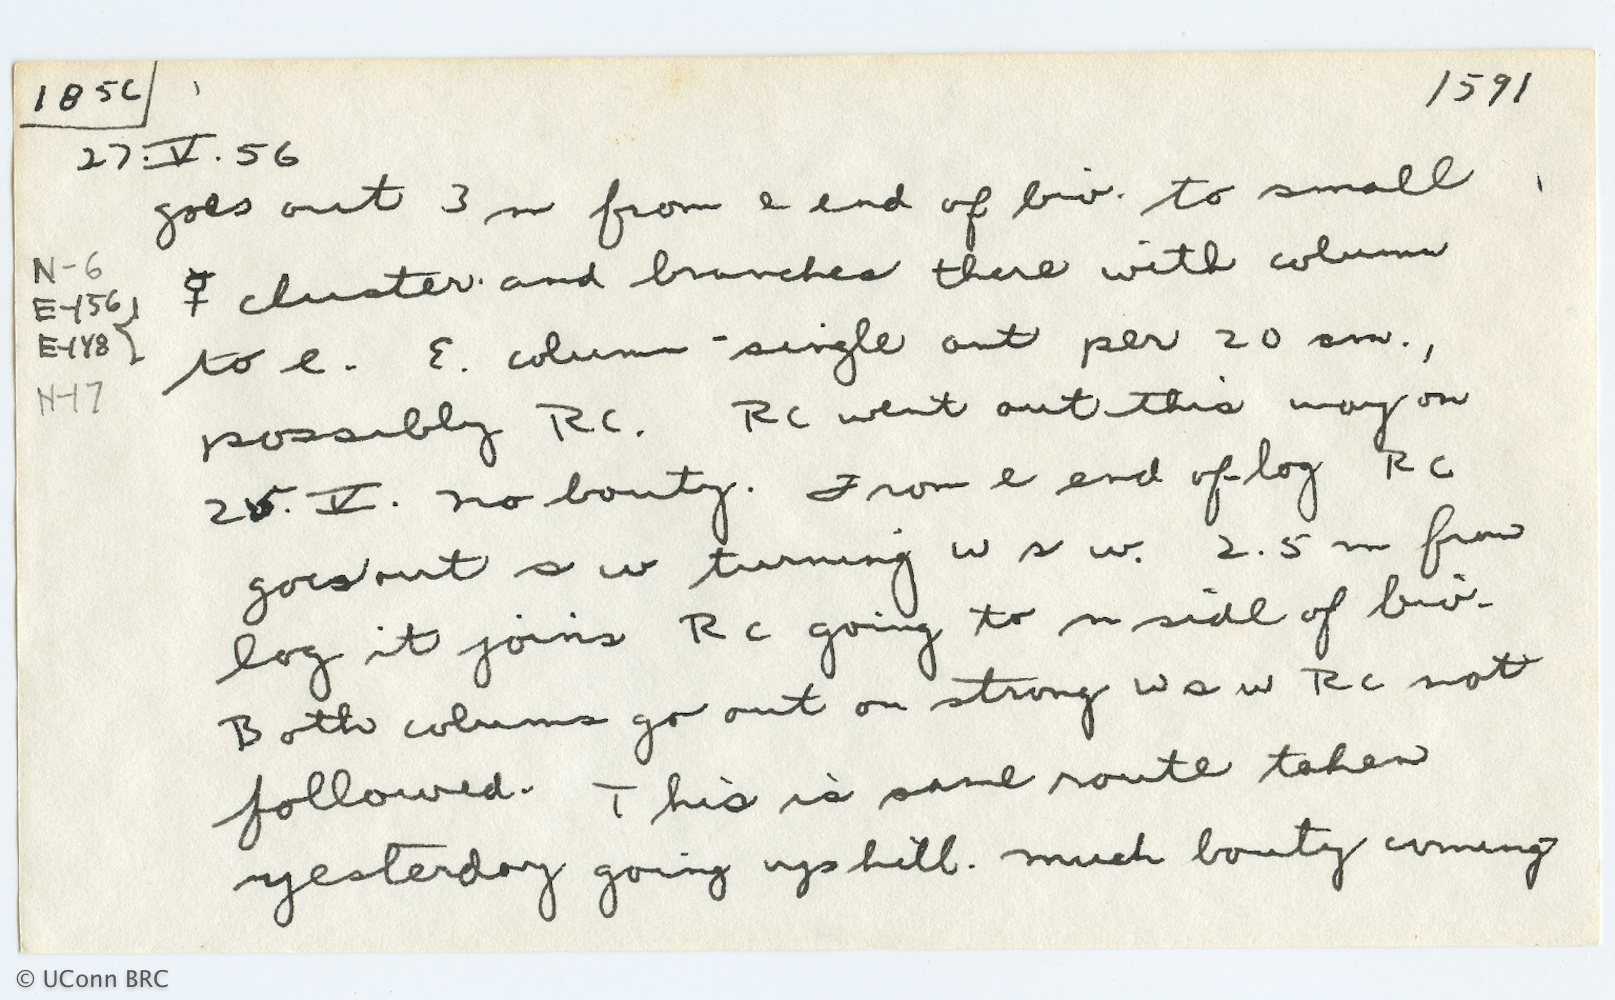 185C 1591
27.V.56
goes out 3 m from e end of biv. to small
N-6
☿ cluster and branches there with column
E-156
E-148
to e. E. column - single ant per 20 sm.,
N-17
possibly RC. RC went out this way on
25.V. no booty. From e end of log RC
goes out s w turning w s w. 2.5 m from
log it joins RC going to n side of biv.
Both colums go out on strong w s w RC not
followed. This is same route taken
yesterday going ups hill. much booty coming
© UConn BRC